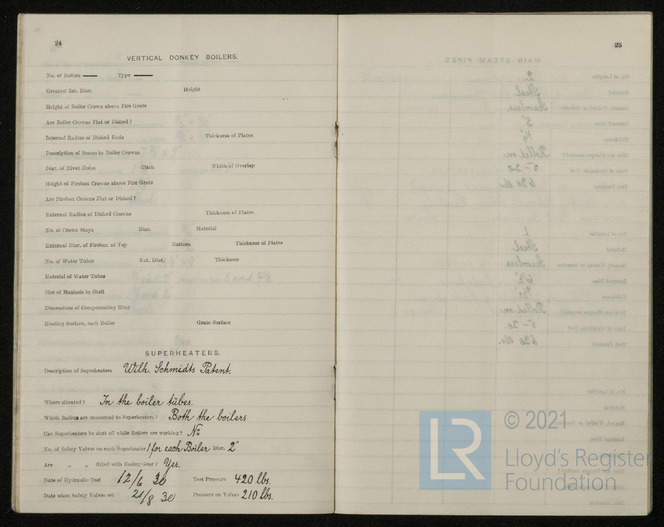 24
VERTICAL DONKEY BOILERS.
No. of Boilers — Type —
Greatest Int. Diar. Height
Height of Boiler Crown above Fire Grate
Are Boiler Crowns Flat or Dished?
Internal Radius of Dished Ends Thickness of Plates
Description of Seams in Boiler Crowns
Diar. of Rivet Holes Pitch Width of Overlap
Height of Firebox Crowns above Fire Grate
Are Firebox Crowns Flat or Dished?
External Radius of Dished Crowns Thickness of Plates
No. of Crown Stays Diar. Material
External Diar. of Firebox at Top Bottom Thickness of Plates
No. of Water Tubes Ext. Diar. Thickness
Material of Water Tubes
Size of Manhole in Shell
Dimensions of Compensating Ring
Heating Surface, each Boiler Grate Surface
SUPERHEATERS.
Description of Superheaters Wilh. Schmidts Patent.
Where situated? In the boiler tubes.
Which Boilers are connected to Superheaters? Both the boilers
Can Superheaters be shut off while Boilers are working? No
No. of Safety Valves on each Superheater 1 for each Boiler Diar. 2"
Are " " fitted with Easing Gear? Yes.
Date of Hydraulic Test 12/6 30 Test Pressure 420 lbs.
Date when Safety Valves set 21/8 30 Pressure on Valves 210 lbs.
25
LR
© 2021
Lloyd's Register
Foundation